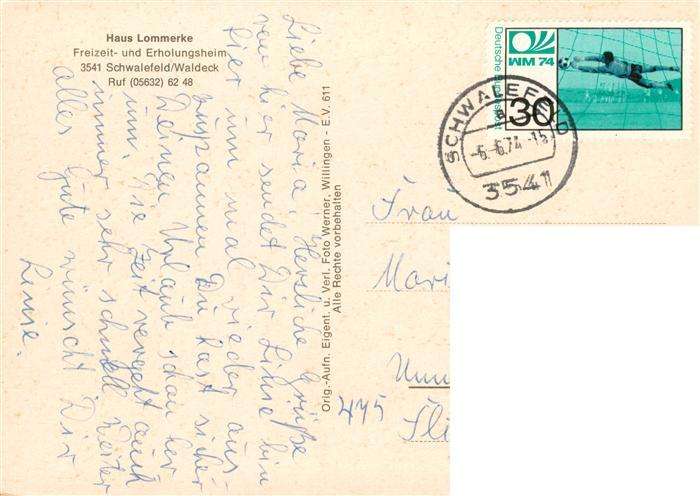 Haus Lommerke
Freizeit- und Erholungsheim
3541 Schwalefeld/Waldeck
Ruf (05632) 62 48
Liebe Maria, Herzliche Grüße
von hier sendet Dir Linie bin
hier um mal wieder aus-
zuspannen Du hast sicher
Deinen Urlaub schon her
um. Die Zeit vergeht auch
immer sehr schnell weiter
alles Gute wünscht Dir
Linie.
Orig.-Aufn. Eigent. u. Verl. Foto Werner, Willingen - E.V. 611
Alle Rechte vorbehalten
Deutsche Bundespost
WM 74
30
SCHWALEFELD
-6.-6.74.-15
3541
Frau
Mari
Unn
445